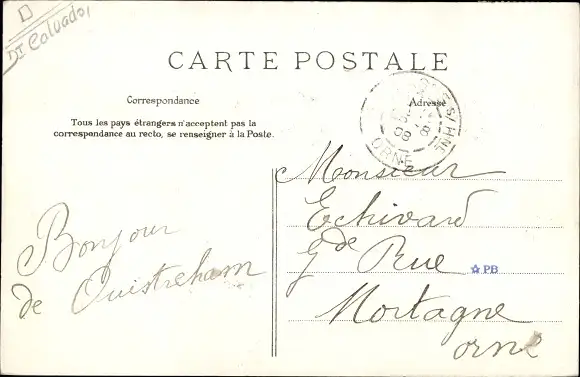 D
Dt Calvados
CARTE POSTALE
Correspondance
Adresse
Tous les pays étrangers n'acceptent pas la
correspondance au recto, se renseigner à la Poste.
S/HNE
ORNE
Bonjour
de Ouistreham
Monsieur
Echivard
Gde Rue
PB
Mortagne
Orne